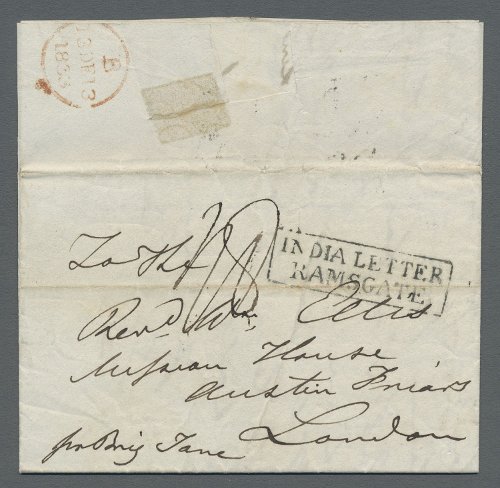 B
13 DE 13
INDIA LETTER
RAMSGATE
To the
Revd. Wm. Ellis
Mission House
Austin Friars
London
pr Brig Jane